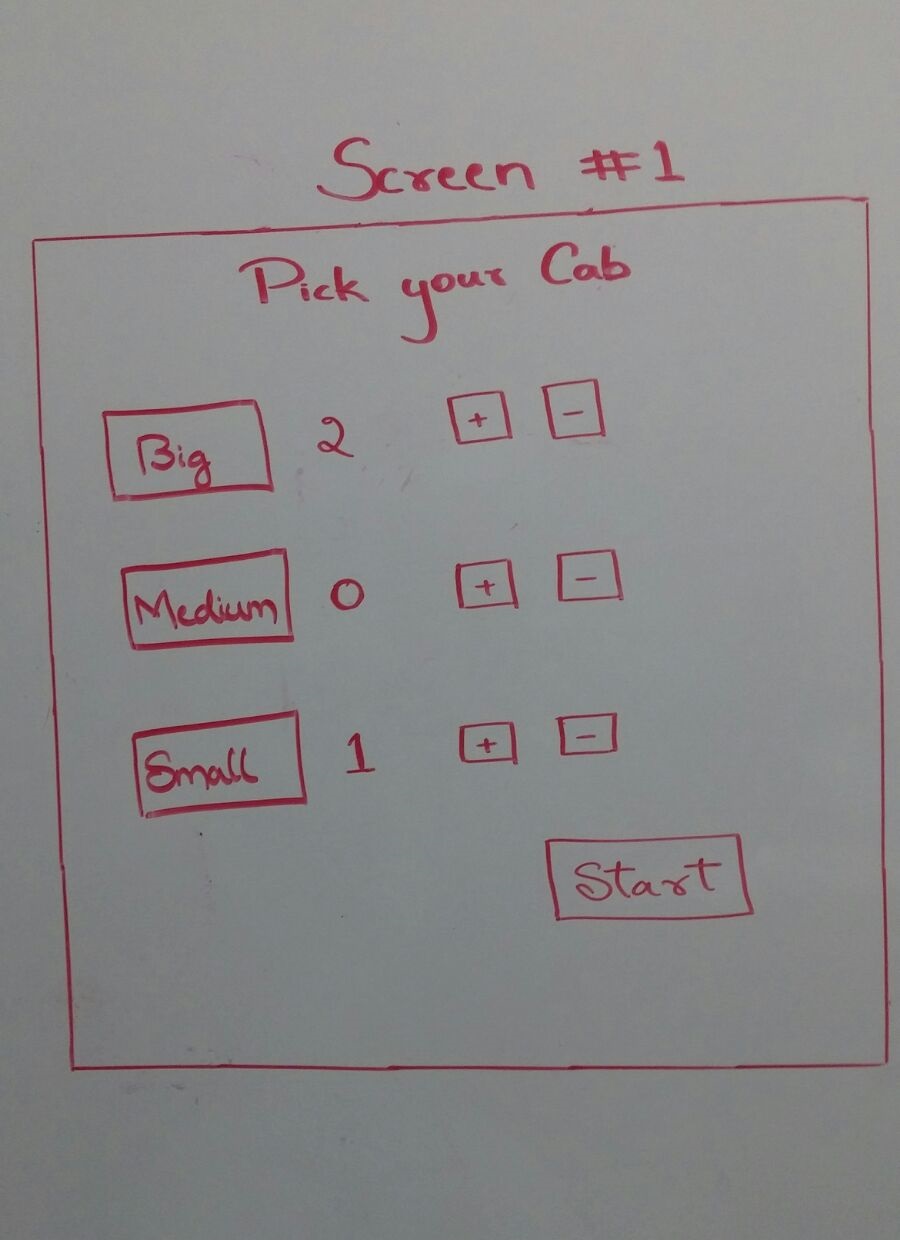 Screen #1
Pick your Cab
Big 2 + -
Medium 0 + -
Small 1 + -
Start